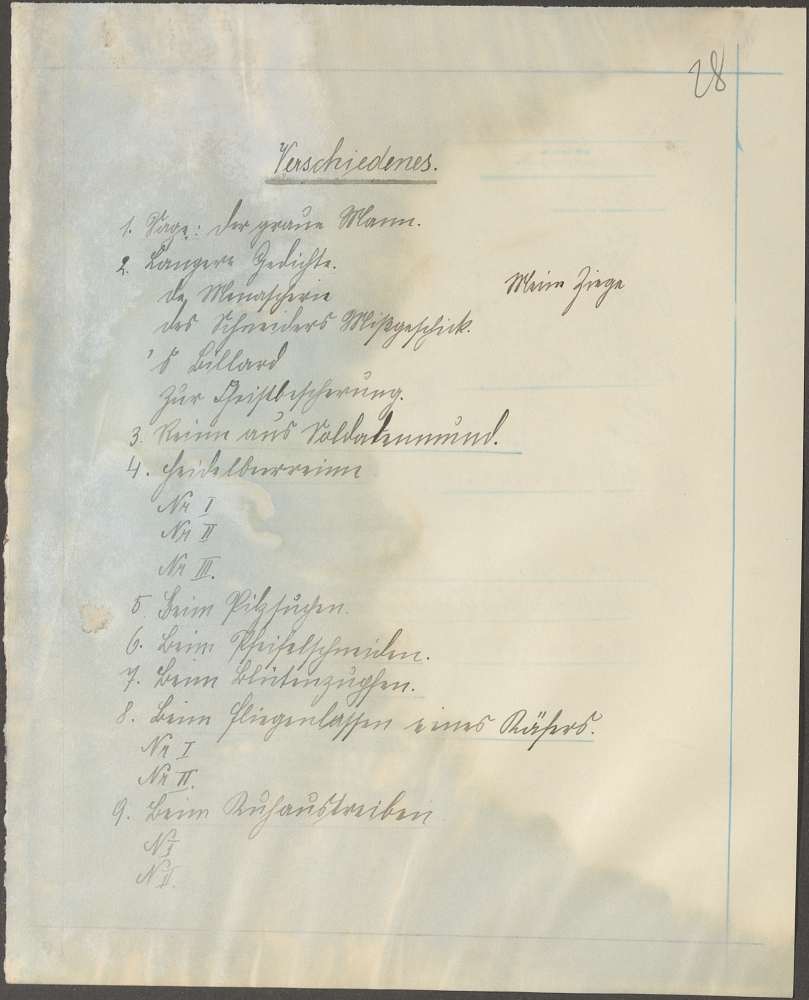 28
Verschiedenes.
1. Sage: Der graue Mann.
2. Längere Gedichte.
De Menascherie
Meine Ziege
Des Schneiders Mißgeschick.
's Billard
Zur Christbescherung.
3. Reime aus Soldatenmund.
4. Heidelbeerreime
Nr I
Nr II
Nr III.
5. Beim Pilzsuchen.
6. Beim Pfeifelschneiden.
7. Beim Blütenzupfen.
8. Beim Fliegenlassen eines Käfers.
Nr I
Nr II.
9. Beim Kuhaustreiben
N I
N II.